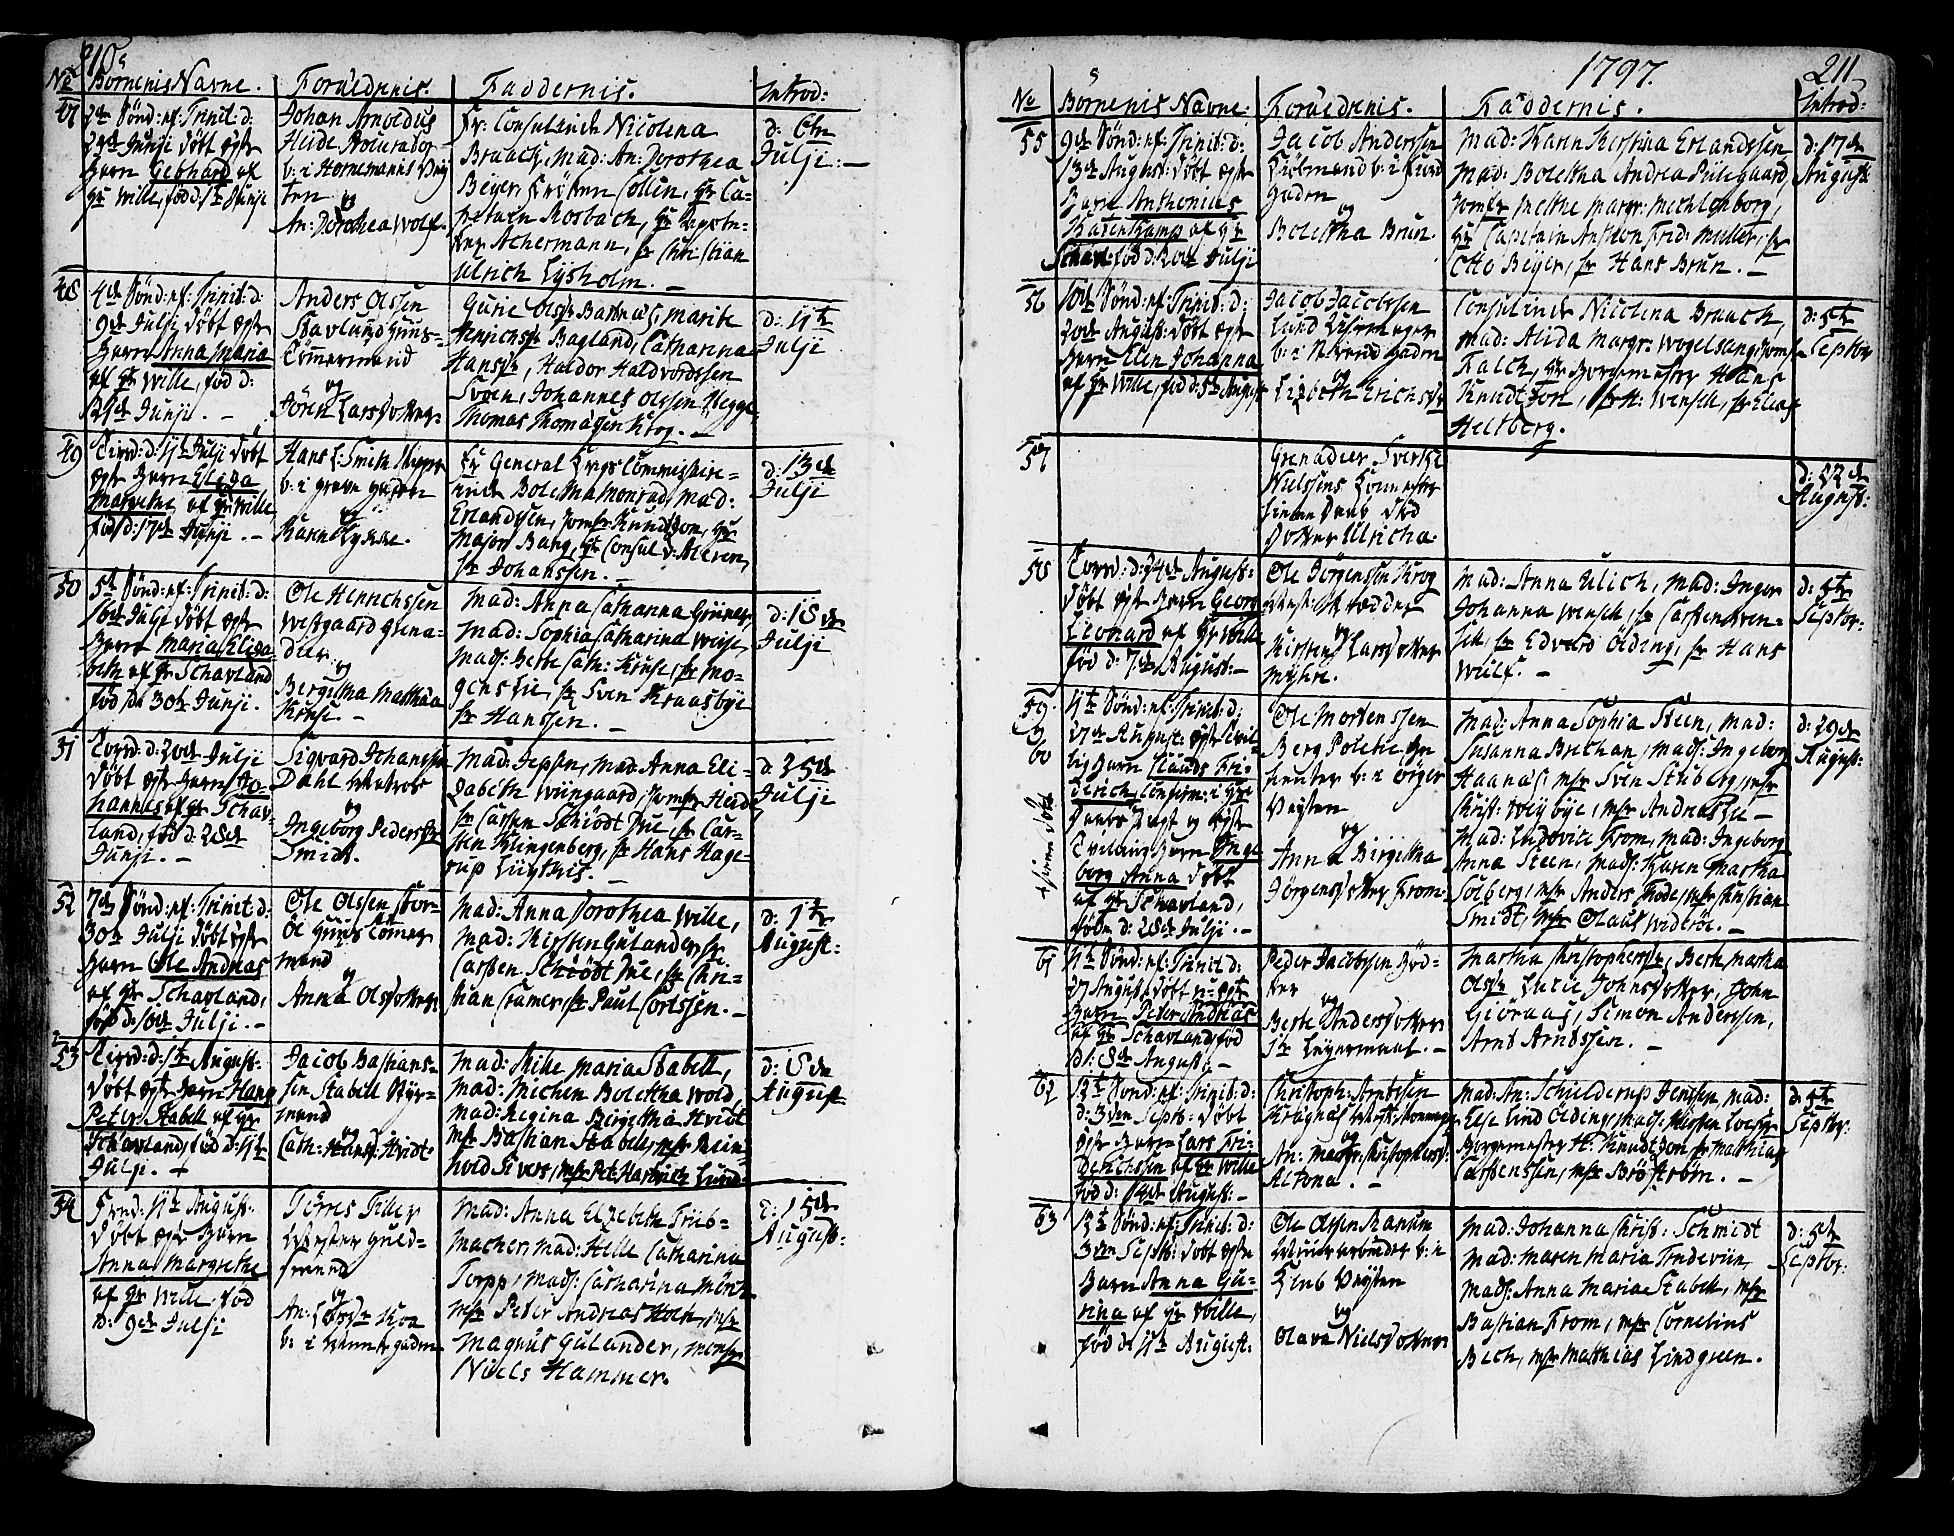 210
No Børnenis Navne. Forældrenis. Faddernis. Introd:
47
3de Sønd: ef: Trinit: d:
Junji døbt
Barn Gebhard af
Hr Wille, fød d: Junji
Johan Arnoldus
Heide Procurador
b: i Hornemanns Vey
ten
og
An: Dorothea Wolf.
Fr: Consulinde Nicolina
Braack, Mad: An: Dorothea
Beyer, Frøken Collin, Hr Ca-
petain Rosbach, Hr
Achermann, Sr Christian
Ulrich Lysholm. —
d: 6te
Julji. —
48
4de Sønd: ef: Trinit: d:
9de Julji døbt
Barn Anna Maria
af Hr Wille, fød d:
29de Junji. —
Anders Olsen
Stavlund Huus-
Tömmermand
og
Sören Larsdotter
Gurie Olsdr Marite
Henrichsdr Bagland, Catharina
Hansdr, Haldor Haldvordssen
Svoen, Johannes Olssen Hegge
Thomas Thomasen Krog. —
d: 11te
Julji
49
Tirsd: d: 11te Julji døbt
Barn Eliza
Margrethe af Hr Wille,
fød d: 17de Junji. —
Hans L: Smith Skipper
b: i Grave gaden
og
Karen Lykke.
Fr General Krigs Commissaire-
inde Bolettha Monrad, Mad:
Erlandssen, Jomfr Knudtzon, Hr
Major Bang, Hr Consul v: Meeren,
Sr Johanssen. —
d: 13de
Julji
50
5te Sønd: ef: Trinit: d:
16de Julji døbt
Barn Maria Eliza
beth af Hr Schavland
fød d: 30te Junji.
Ole Henrichssen
Westgaard Grena-
dier
og
Bergettha Matthæa
Kruse. —
Mad: Anna Catharina Grüner,
Mad: Sophia Catharina Weise,
Mads: Berte Cath: Kruse, Sr Mo-
gens Lie, Sr Sven Kraasbye
Sr Hanssen. —
d: 18de
Julji
51
Torsd: d: 20de Julji
døbt Barn Jo-
hannes af Hr Schav-
land, fød d: 28de
Junji. —
Sigvard Johanssen
Dahl Matros
og
Ingeborg Pedersdr
Smidt.
Mad: Jepsen, Mad: Anna Eli-
zabeth Wiingaard, Jomfr Heide
Sr Carsten Schiödt Jue, Sr Car-
sten Klingenberg, Sr Hans Hage-
rup Lügthis. —
d: 25de
Julji
52
7de Sønd: ef: Trinit: d:
30te Julji døbt
Barn Ole Andreas
af Hr Schavland,
fød d: 10de Julji. —
Ole Olssen Stor-
öe Huus Tömer
mand
og
Anna Olsdotter
Mad: Anna Dorothea Wille,
Mad: Kirsten Gulander, Sr
Carsten Schiödt Jue, Sr Chri-
stian Cramer, Sr Paul Corlssen. —
d: 1te
August:
53
Tirsd: d: 1te August:
døbt Barn Hans
Peter Stabell af Hr
Schavland, fød d: 11te
Julji. —
Jacob Bastians-
sen Stabell Styr-
mand
og
Cath: Hansdr Hvidt
Mad: Mille Maria Stabell,
Mad: Michen Bolettha Wold,
Mad: Regina Birgettha Hvidt
Msr Bastian Stabell, Msr Rein-
hold Sivers, Msr Pet: Hartvich Lund
d: 8de
August
54
Fred: 11te August:
døbt Barn
Anna Margrethe
af Hr Wille, fød
d: 9de Julji
Törres Tiller
Mester Guld-
smed
og
An: Larsdr Koa
b: i gaden
Mad: Anna Elzebeth Trüb-
macher, Mad: Helle Catharina
Torpp, Mads: Catharina Mönt
Msr Peter Andreas Holte, Msr
Magnus Gulander, Monsr
Niels Hammer.
d: 15de
August:
1797. 211
No Børnenis Navne. Forældrenis. Faddernis. Introd:
55
9de Sønd: ef: Trinit: d:
13de August: døbt
Barn Anthonius
Hasenkamp af Hr
Schavl: fød d: 20de Julji
Jacob Anderssen
Kiöbmand b: i
Gaden
og
Bolettha Brun.
Mad: Karen Kirstina Erlandssen
Mad: Bolettha Andrea Piilgaard,
Jomfr Metthe Margr: Mechlenborg,
Hr Capitain Anthon Frid: Müller, Sr
Otto Beyer, Sr Hans Brun. —
d: 17de
August:
56
10de Sønd: ef: Trinit: d:
20de August: døbt
Barn Elen Johanna
af Hr Wille, fød d: 5te August
Jacob Jacobssen
Lund
b: i gaden
og
Lizbeth Erichsdr
Consulinde Nicolina Braack,
Mad: Alida Margr: Wogelsang, Jomfr
Falch, Hr Borgemester Hans
Knudtzon, Sr H: Wensell, Sr Elias
Heltberg.
d: 5te
Septbr
57
Grenadier Sivert
Nielssens
død
dotter Ulricha.
d: 22de
August:
58
Torsd: d: 24de August:
døbt Barn Georg
Leonard af Hr Wille
fød d: 7de August: —
Ole Jörgenssen Krog
Skrædder
og
Kirsten Larsdotter
Myhre.
Mad: Anna Ulich, Mad: Inger
Johanna Wensell, Sr Carsten Wen-
sell, Sr Edvard Ölding, Sr Hans
Wulf. —
d: 5te
Septbr:
59.
&
60
11te Sønd: ef: Trinit: d:
27de August:
ling Barn Claus Fri-
derich, Confirm: i Hr:
og
Tvilling Barn Inge
borg Anna døbt
af Hr Schavland,
fødde d: 28de Julji. —
Ole Mortenssen
Berg Politie
b: i
og
Anna Birgettha
Jörgensdotter From
Mad: Anna Sophia Steen, Mad:
Susanna Brethan, Mads: Ingeborg
Haanas, Msr Sven Stuberg, Msr
Christ: Weybye, Msr Andreas Lie —
Mad: Ludovice From, Mad: Ingeborg
Anna Steen, Mads: Karen Martha
Solberg, Msr Anders Gode, Msr Christian
Smidt, Msr Olaus Widerøe. —
d: 29de
August:
61
11te Sønd: ef: Trinit: d:
27 August: døbt
Barn Peter Andreas
af Hr Schavland, fød
d: 8de August: —
Peder Jacobssen Böd-
ker
og
Berte Andersdotter
Leyermaal. —
Martha Christophersdr, Berte Martha
Olsdr, Lucie Johnsdotter, John
Giöraas, Simon Anderssen,
Arnt Arntssen. —
62
12te Sønd: ef: Trinit: d:
d: 3die Septb: døbt
Barn Lars Fri-
derichssen af Hr Wille
fød d: 14de August: —
Christoph: Arntssen
Kragnæs
og
An: Margr: Christophersdr:
Altona. —
Mad: An: Schielderup Jenssen, Mad:
Else Lind Ölding, Mads: Kirsten
Borgemester H: Knudtzon, Sr Matthias
Carstenssen, Msr Broström. —
d: 5te
Septbr:
63
12te Sønd: ef: Trinit: d:
3die Septb: døbt
Barn Anna Gu-
rina af Hr Wille,
fød d: 11te August:
Ole Olssen Ranum
b: i
Veyten
og
Olava Nielsdotter
Mad: Johanna Christ: Schmidt
Mad: Maren Maria
Mads: Anna Maria Stabell, Msr
Bastian From, Msr Cornelius
Bech, Msr Matthias Lindgreen.
d: 5te
Septbr: